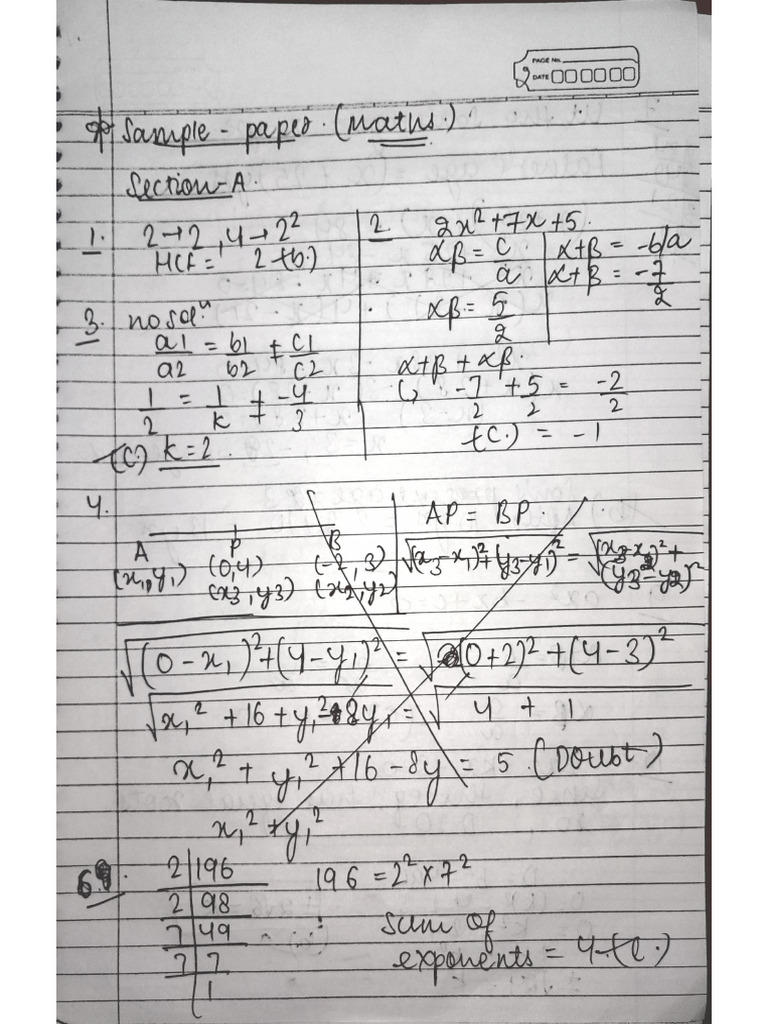 PAGE No.
DATE
* Sample - paper. (Maths.)
Section-A.
1. 2→2, 4→2²
HCF = 2 (b.)
2 2x²+7x+5.
αβ = c/a
αβ = 5/2
α+β = -b/a
α+β = -7/2
α+β + αβ.
↳ -7/2 + 5/2 = -2/2
(C.) = -1
3. no solⁿ
a1/a2 = b1/b2 ≠ c1/c2
1/2 = 1/k ≠ -4/3
(C) k=2.
4.
A P B
(x₁,y₁) (0,4) (-2,3)
(x3,y3) (x2,y2)
AP = BP.
√(x₃-x₁)²+(y₃-y₁)² = √(x3-x2)²+
(y3-y2)²
√(0-x₁)²+(4-y₁)² = √(0+2)²+(4-3)²
√x₁²+16+y₁²-8y₁ = √4+1
x₁²+y₁²+16-8y = 5 (Doubt)
x₁²+y₁²
6.
2|196
2|98
7|49
7|7
|1
196 = 2²×7²
sum of
exponents = 4 (C.)